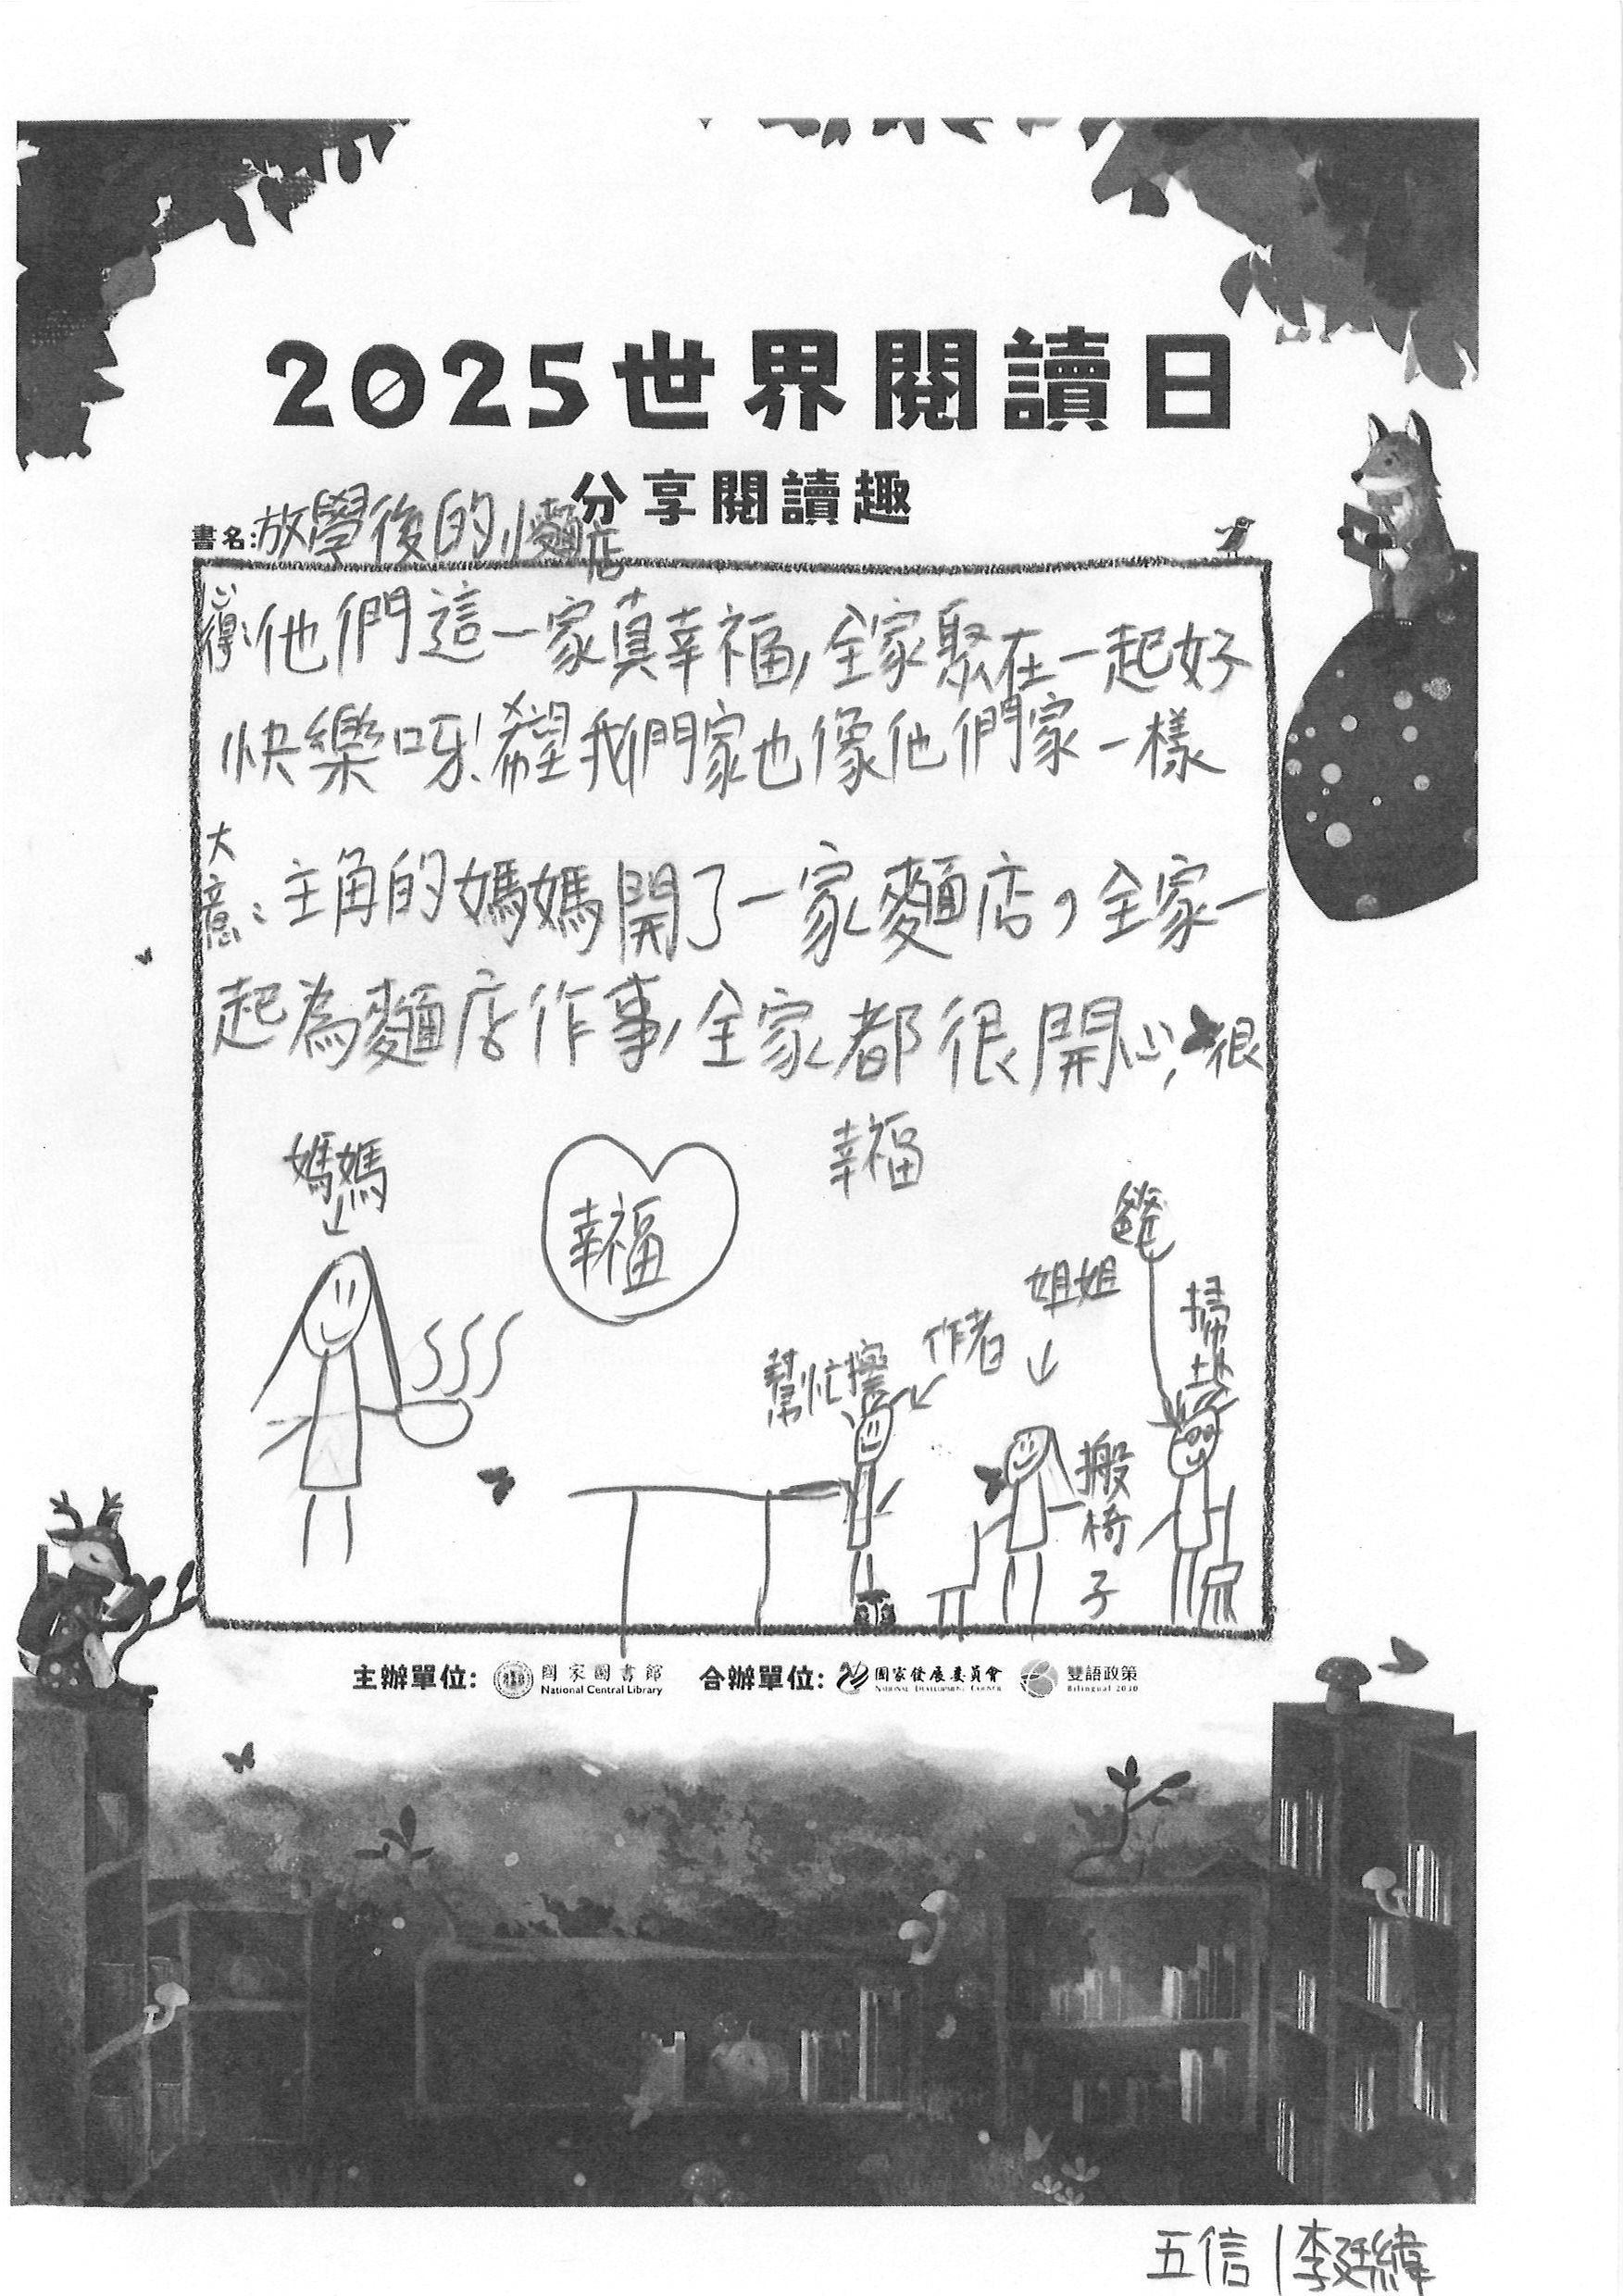 2025世界閱讀日
分享閱讀趣
書名:放學後的小麵店
心得:他們這一家真幸福,全家聚在一起好
快樂呀!希望我們家也像他們家一樣
大意:主角的媽媽開了一家麵店,全家一
起為麵店作事,全家都很開心,很
幸福
媽媽
幸福
爸爸
姐姐
掃地
作者
幫忙擦
搬椅子
主辦單位: 國家圖書館 National Central Library 合辦單位: 國家發展委員會 National Development Council 雙語政策 Bilingual 2030
五信 1 李廷緯